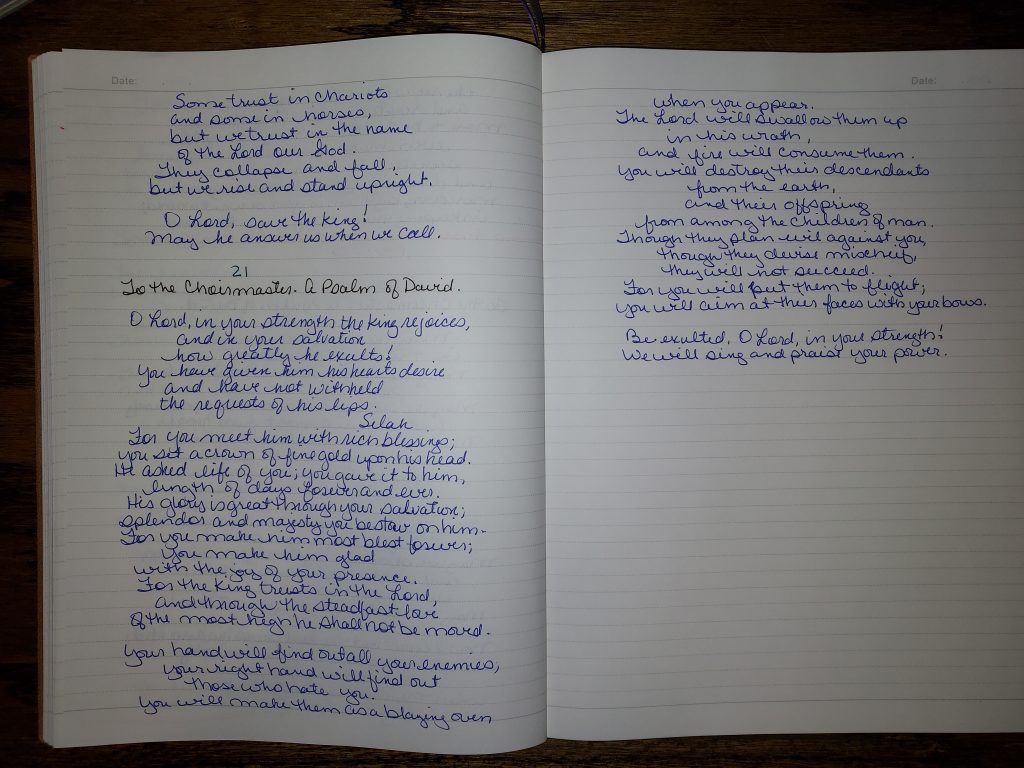 Date:
Some trust in chariots
and some in horses,
but we trust in the name
of the Lord our God.
They collapse and fall,
but we rise and stand upright.
O Lord, save the king!
May he answer us when we call.
21
To the Choirmaster. A Psalm of David.
O Lord, in your strength the king rejoices,
and in your salvation
how greatly he exults!
You have given him his hearts desire
and have not withheld
the requests of his lips.
Selah
For you meet him with rich blessings;
you set a crown of fine gold upon his head.
He asked life of you; you gave it to him,
length of days forever and ever.
His glory is great through your salvation;
splendor and majesty you bestow on him.
For you make him most blest forever;
you make him glad
with the joy of your presence.
For the King trusts in the Lord,
and through the steadfast love
of the most high he shall not be moved.
Your hand will find out all your enemies,
your right hand will find out
those who hate you.
You will make them as a blazing oven
Date:
when you appear.
The Lord will swallow them up
in his wrath,
and fire will consume them.
You will destroy their descendants
from the earth,
and their offspring
from among the children of man.
Though they plan evil against you,
though they devise mischief,
they will not succeed.
For you will put them to flight;
you will aim at their faces with your bows.
Be exulted, O Lord, in your strength!
We will sing and praise your power.